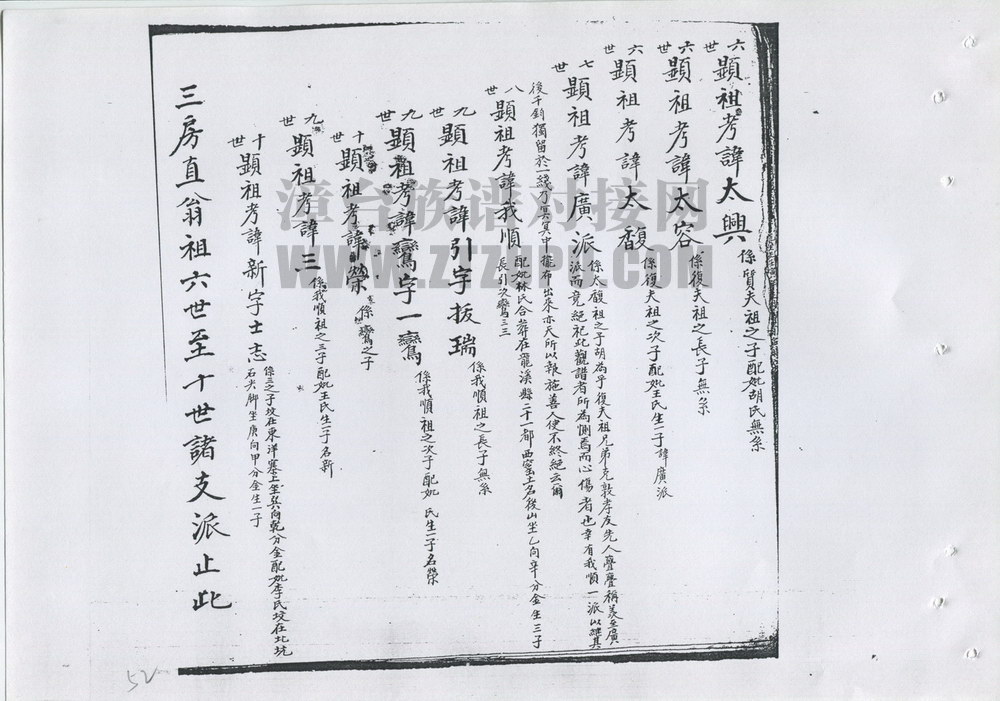 六世 顯祖考諱太興 係質夫祖之子配妣胡氏無系
六世 顯祖考諱太容 係復夫祖之長子無系
六世 顯祖考諱太馥 係復夫祖之次子配妣王氏生一子諱廣派
七世 顯祖考諱廣派 係太馥祖之子胡為乎復夫祖兄弟克敦孝友先人亹亹稱羨至廣
派而竟絕祀此觀譜者所為惻焉而心傷者也幸有我順一派以繼其
後千鈞獨留於一綫乃冥冥中擺布出來亦天所以報施善人使不終絕云爾
八世 顯祖考諱我順 配妣林氏合葬在龍溪縣二十一都西 土名後山坐乙向辛分金生三子
長引次鸞三三
九世 顯祖考諱引字拔瑞 係我順祖之長子無系
九世 顯祖考諱鸞字一鸞 係我順祖之次子配妣 氏生一子名榮
十世 顯祖考諱榮 係鸞之子
九世 顯祖考諱三 係我順祖之三子配妣王氏生一子名新
十世 顯祖考諱新字士志 係三之子坟在東洋寨上坐巽向乾分金配妣李氏坟在北坑
石夾脚坐庚向甲分金生一子
三房直翁祖六世至十世諸支派止此
漳台族谱对接网
www.zlzupu.com
52